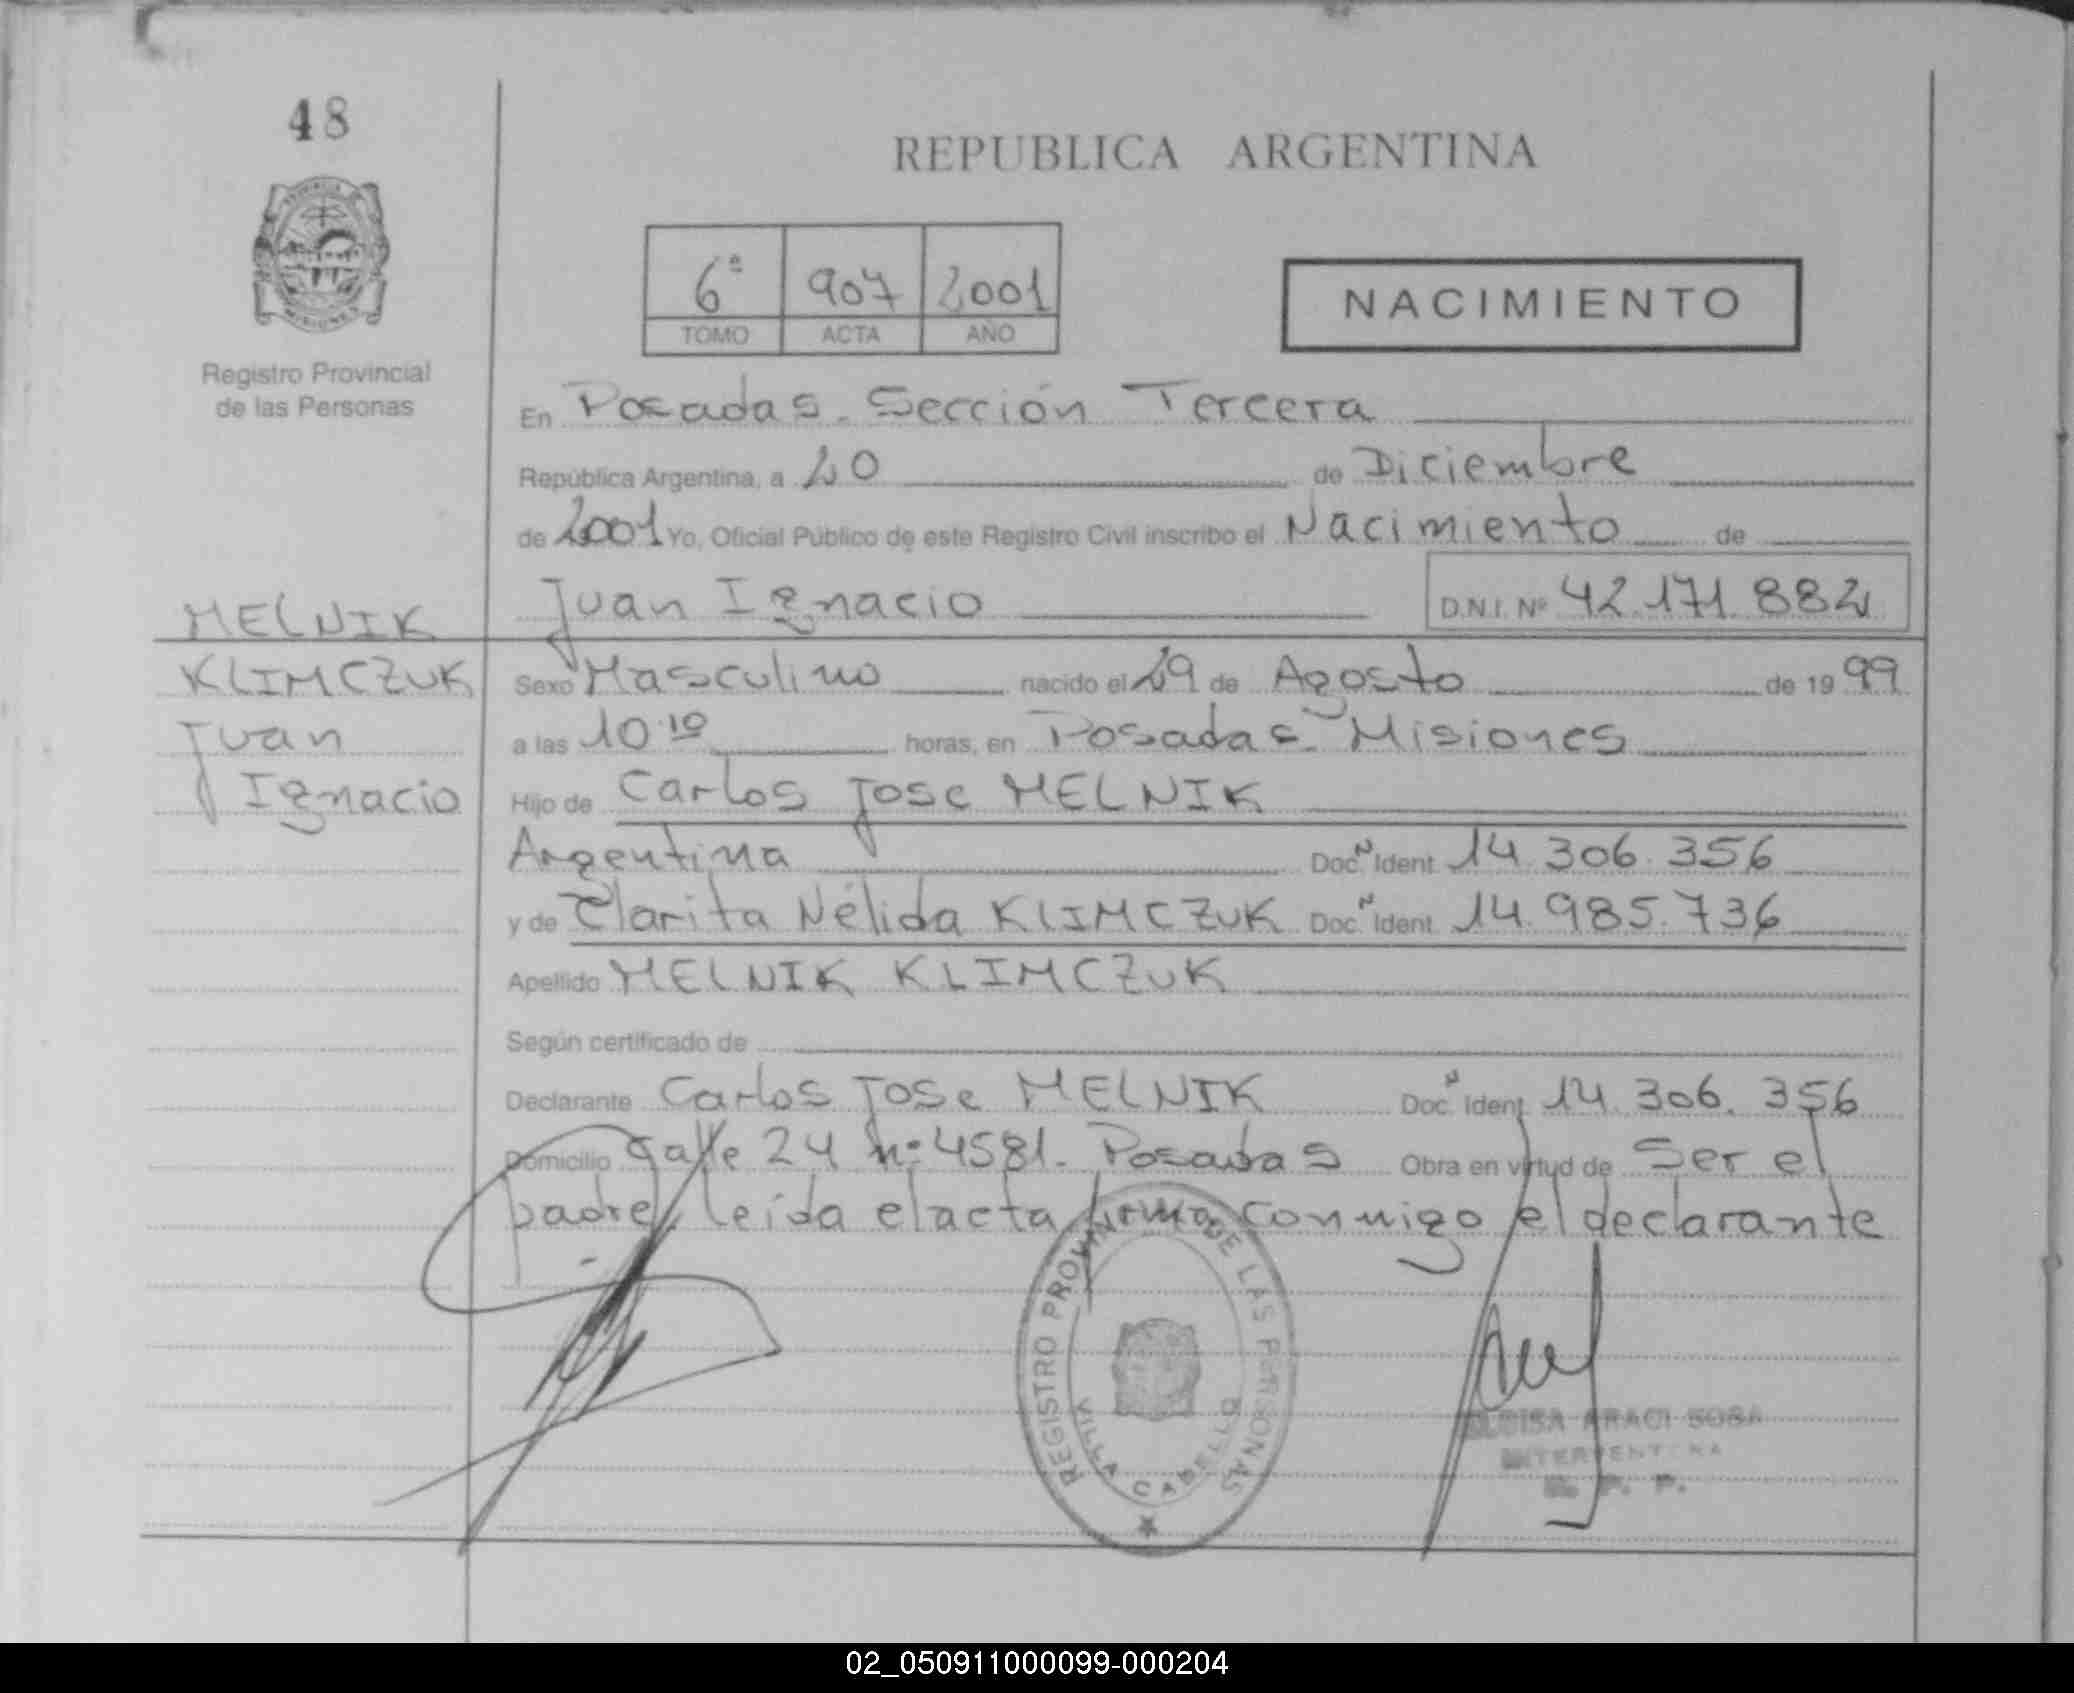 48
REPUBLICA ARGENTINA
6ª 907 2001
TOMO ACTA AÑO
NACIMIENTO
Registro Provincial
de las Personas
En Posadas. Sección Tercera
República Argentina, a 20 de Diciembre
de 2001 Yo, Oficial Público de este Registro Civil inscribo el Nacimiento de
Juan Ignacio D.N.I. Nº 42.171.882
MELNIK
KLIMCZUK
Juan
Ignacio
Sexo Masculino nacido el 29 de Agosto de 1999
a las 10:10 horas, en Posadas Misiones
Hijo de Carlos Jose MELNIK
Argentina Doc. N Ident. 14.306.356
y de Clarita Nélida KLIMCZUK Doc. N Ident. 14.985.736
Apellido MELNIK KLIMCZUK
Según certificado de
Declarante Carlos Jose MELNIK Doc. N Ident. 14.306.356
Domicilio Calle 24 nº 4581. Posadas Obra en virtud de Ser el
padre. leída el acta firma conmigo el declarante
REGISTRO PROVINCIAL DE LAS PERSONAS
VILLA CABELLO
ELOISA ARACI SOSA
INTERVENTORA
R. P. P.
02_050911000099-000204